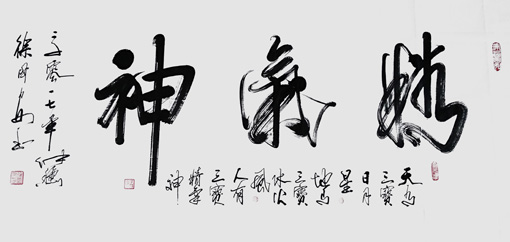 精氣神
天有
三寶
日月
星
地有
三寶
水火
風
人有
三寶
精氣
神
零一七年
徐